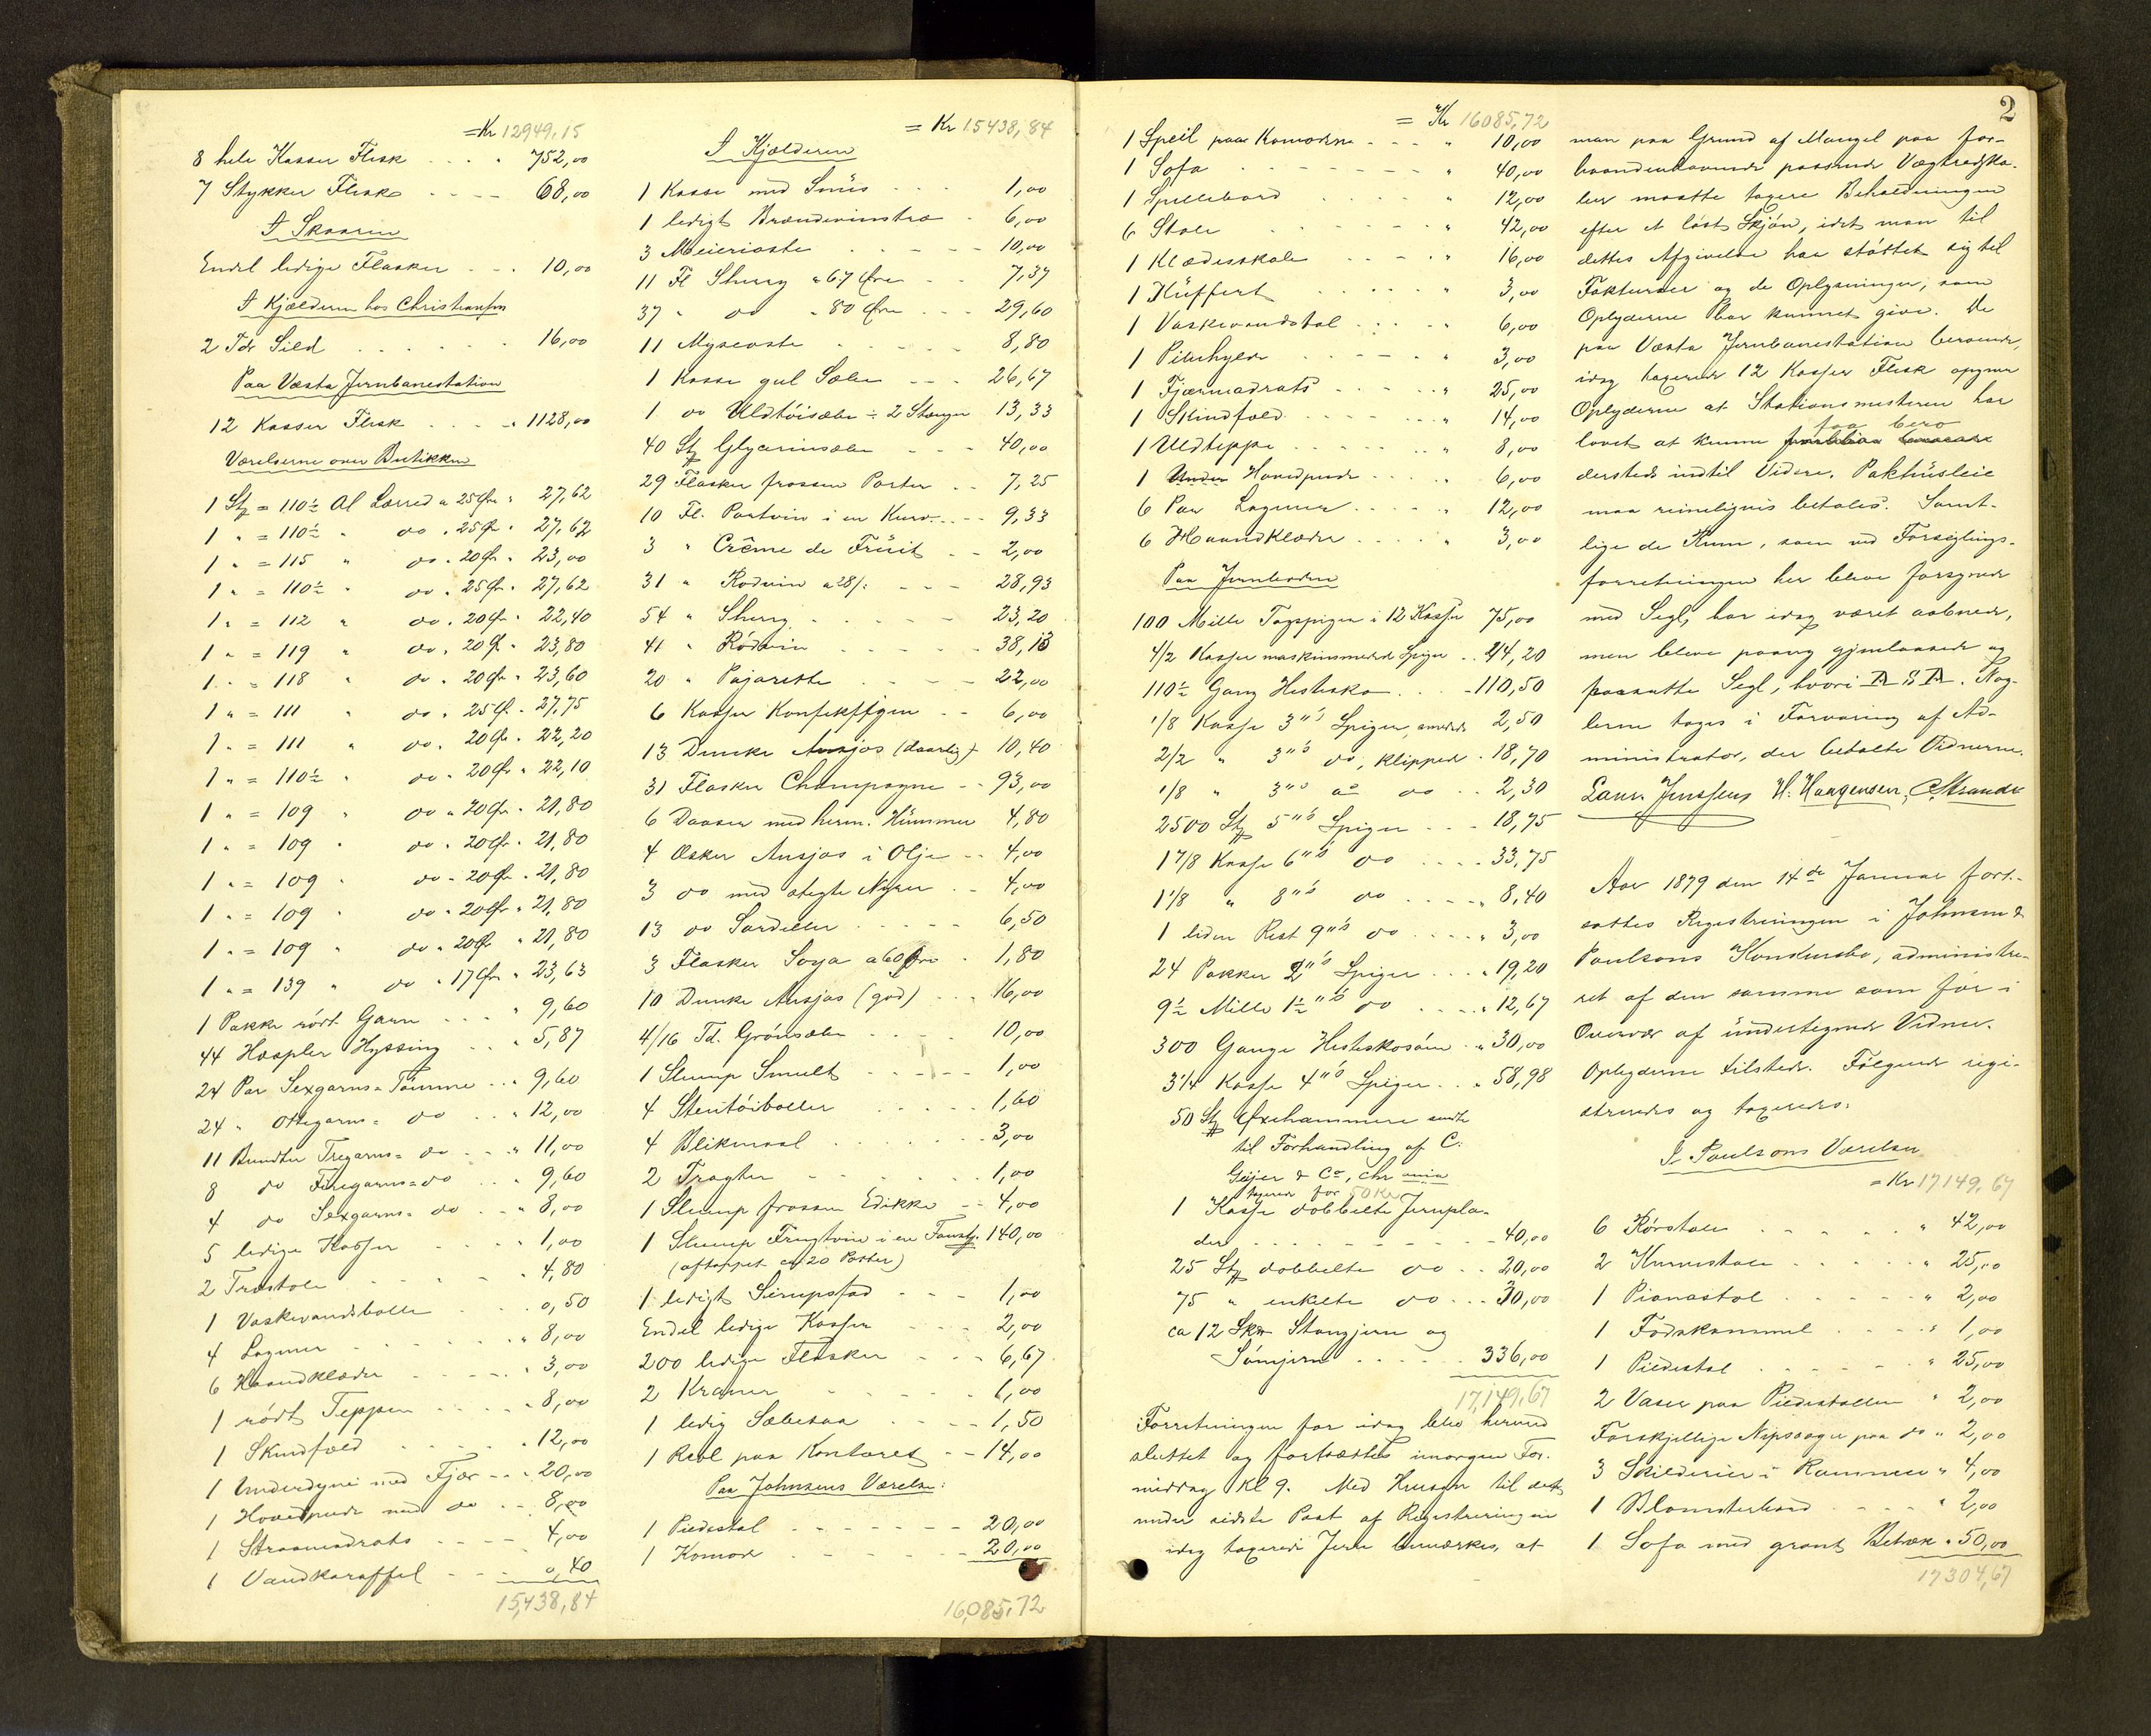 = Kr 12949,15
8 hele Kasser Flesk . . . . 752,00
7 Stykker Flesk . . . . 68,00
I Skaarin
Endel ledige Flasker . . . 10,00
I Kjælderen hos Christiansen
2 Tdr Sild . . . . . 16,00
Paa Væsta Jernbanestation
12 Kasser Flesk . . . . " 1128,00
Værelserne over Butikken
1 Stk = 110½ Al Lærred a 25 Øre " 27,62
1 " = 110½ " do " 25 Ør " 27,62
1 " = 115 " do " 20 Ør " 23,00
1 " = 110½ " do " 25 Ør " 27,62
1 " = 112 " do " 20 Ør " 22,40
1 " = 119 " do " 20 Ør " 23,80
1 " = 118 " do " 20 Ør " 23,60
1 " = 111 " do " 25 Ør " 27,75
1 " = 111 " do " 20 Ør " 22,20
1 " = 110½ " do " 20 Ør " 22,10
1 " = 109 " do " 20 Ør " 21,80
1 " = 109 " do " 20 Ør " 21,80
1 " = 109 " do " 20 Ør " 21,80
1 " = 109 " do " 20 Ør " 21,80
1 " = 109 " do " 20 Ør " 21,80
1 " = 139 " do " 17 Ør " 23,63
1 Pakke rödt Garn . . . " 9,60
44 Hespler Hyssing . . . " 5,87
24 Par Sexgarns=Tömme . . " 9,60
24 " Ottegarns= do . . " 12,00
11 Bundter Tregarns= do . . " 11,00
8 do Firegarns= do . . " 9,60
4 do Sexgarns= do . . " 8,00
5 ledige Kasser . . . " 1,00
2 Træstole . . . " 4,80
1 Vaskevandsbolle . . . 0,50
4 Lagener . . . " 8,00
6 Haandklæder . . . " 3,00
1 rödt Teppe . . . " 8,00
1 Skindfeld . . . " 12,00
1 Underdyne med Fjær . . " 20,00
1 Hovedpude med do . . 8,00
1 Straamadrats . . . 4,00
1 Vandkaraffel . . . 0,40
15,438,84
= Kr 15438,84
I Kjælderen
1 Kasse med Snus . . . 1,00
1 ledigt Brændevinstræ . 6,00
3 Meierioste . . . . 10,00
11 Fl Sherry a 67 Øre . . 7,37
37 " do " 80 Øre . . . 29,60
11 Myseoste . . . . 8,80
1 Kasse gul Sæbe . . . 26,67
1 do Uldtöisæbe ÷ 2 Stænger 13,33
40 Stk Glycerinsæbe . . . 40,00
29 Flasker frossen Porter . . 7,25
10 Fl. Portvin i en Kurv . . . 9,33
3 " Crême de Früit . . 2,00
31 " Rödvin a 28/: . . . 28,93
54 " Sherry . . . . 23,20
41 " Rödvin . . . . 38,13
20 " Pajarette . . . 22,00
6 Kasser Konfektfigen . . 6,00
13 Dunke Ansjos (daarlig) . 10,40
31 Flasker Champagne . . 93,00
6 Daaser med herm. Hümmer 4,80
4 Æsker Ansjos i Olje . . 4,00
3 do med stegte Nyrer . . 4,00
13 do Sardeller . . . . 6,50
3 Flasker Soya a 60 Øre . 1,80
10 Dunke Ansjos (god) . . . 16,00
4/16 Td. Grönsæbe . . . 10,00
1 Slump Smult . . . . 1,00
4 Stentöiboller . . . . 1,60
4 Blikmaal . . . . 3,00
2 Tragter . . . . 1,00
1 Slump frossen Edikke . . 4,00
1 Slump Frugtvin i en Foustg. 140,00
(aftappet ca 20 Potter)
1 ledigt Sirupsfad . . . 1,00
Endel ledige Kasser . . . 2,00
200 ledige Flasker . . . 6,67
2 Kraner . . . . 1,00
1 ledig Sæbesaa . . . 1,50
1 Reol paa Kontoret . . 14,00
Paa Johnsens Værelse:
1 Piedestal . . . . 20,00
1 Komode . . . . 20,00
16,085,72
= Kr 16085,72
1 Speil paa Komoden . . . " 10,00
1 Sofa . . . . " 40,00
1 Spillebord . . . . " 12,00
6 Stole . . . . " 42,00
1 Klædesskab . . . . " 16,00
1 Küffert . . . . " 3,00
1 Vaskevandsstol . . . " 6,00
1 Pibehylde . . . . " 3,00
1 Fjærmadrats . . . . " 25,00
1 Skindfeld . . . . " 14,00
1 Uldteppe . . . . " 8,00
1 Under Hovedpude . . . " 6,00
6 Par Lagener . . . . " 12,00
6 Haandklæder . . . . " 3,00
Paa Jernboden
100 Mille Tagspiger i 12 Kasser 75,00
4/2 Kasser maskinsmedede Spiger . . 44,20
110½ Gang Hestesko . . . 110,50
1/8 Kasse 3"s Spiger, smedede 2,50
2/2 " 3"s do, klippede . 18,70
1/8 " 3"s a do . . 2,30
2500 Stk 5"s Spiger . . . 18,75
17/8 Kasse 6"s do . . . . 33,75
11/8 " 8"s do . . . . " 8,40
1 liden Rest 9"s do . . . . " 3,00
24 Pakker 2"s Spiger . . . " 19,20
9½ Mille 1½"s do . . . . " 12,67
300 Gange Hesteskosöm . . " 30,00
3¼ Kasse 4"s Spiger . . " 58,98
50 Stk Øxehammere sendte
til Forhandling af C.
Geijer & Co, Chr mia
taxeret for 50 Kr
1 Kasse dobbelte Jernpla-
der . . . . . . 40,00
25 Stk dobbelte do . . 20,00
75 " enkelte do . . . 30,00
ca 12 Sk℔ Stangjern og
Sömjern . . . . . 336,00
17,149,67
Forretningen for idag blev hermed
sluttet og fortsættes imorgen For-
middag Kl 9. Med Hensyn til det
under sidste Post af Registreringen
idag taxerede Jern bemærkes, at
2
man paa Grund af Mangel paa for-
haandenværende passende Vægtredska-
ber maatte taxere Beholdningen
efter et löst Skjön, idet man til
dettes Afgivelse har stöttet sig til
Fakturaer og de Oplysninger, som
Opbyderne har kunnet give. De
paa Væsta Jernbanestation beroende,
idag taxerede 12 Kasser Flesk opgiver
Opbyderne at Stationsmesteren har
faa bero
lovet at kunne forblive beroende
dersteds indtil Videre. Pakhüsleie
maa rimeligvis betales. Samt-
lige de Rum, som ved Forseglings-
forretningen her bleve forsynede
med Segl, har idag været aabnede,
men bleve paany gjenlaasede og
paasatte Segl, hvori R S R. Nøg-
lerne tages i Forvaring af Ad-
ministrator, der betalte Vidnerne.
Laur. Jenssens H. Haagensen, C. Strande
Aar 1879 den 14de Januar fort-
sattes Registreringen i Johnsen &
Paulsons Konkursbo, administre-
ret af den samme som för i
Overvær af ündertegnede Vidner.
Opbyderne tilstede. Fölgende regi-
streredes og taxeredes.
I Paulsons Værelse
= Kr 17149,67
6 Rörstole . . . . . " 42,00
2 Kurvestole . . . . " 25,00
1 Pianostol . . . . " 2,00
1 Fodskammel . . . . " 1,00
1 Piedestal . . . . " 25,00
2 Vaser paa Piedestallen " 2,00
Forskjellige Nipssager paa do " 2,00
3 Skilderier i Rammer " 4,00
1 Blomsterbord . . . . " 2,00
1 Sofa med grønt Betræk " 50,00
17304,67